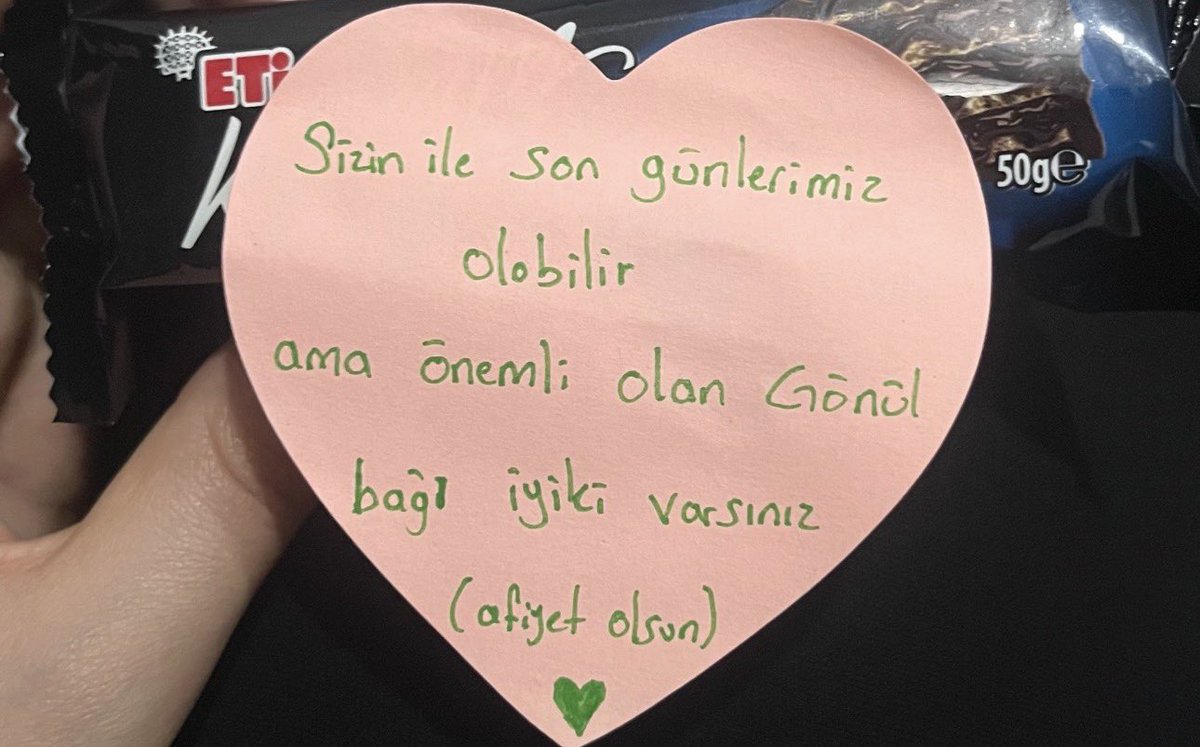 ETİ
50g℮
Sizin ile son günlerimiz
olabilir
ama önemli olan Gönül
bağı iyiki varsınız
(afiyet olsun)